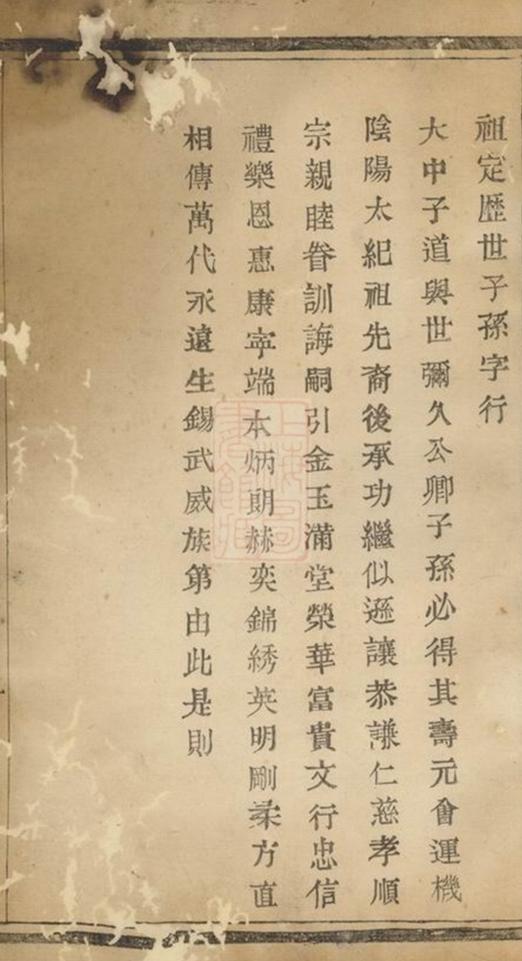 祖定歷世子孫字行
大中子道與世彌久公卿子孫必得其壽元會運機
陰陽太紀祖先裔後承功繼似遜讓恭謙仁慈孝順
宗親睦眷訓誨嗣引金玉滿堂榮華富貴文行忠信
禮樂恩惠康寧端本炳朗赫奕錦綉英明剛柔方直
相傳萬代永遠生錫武威族第由此是則
上海圖書館藏